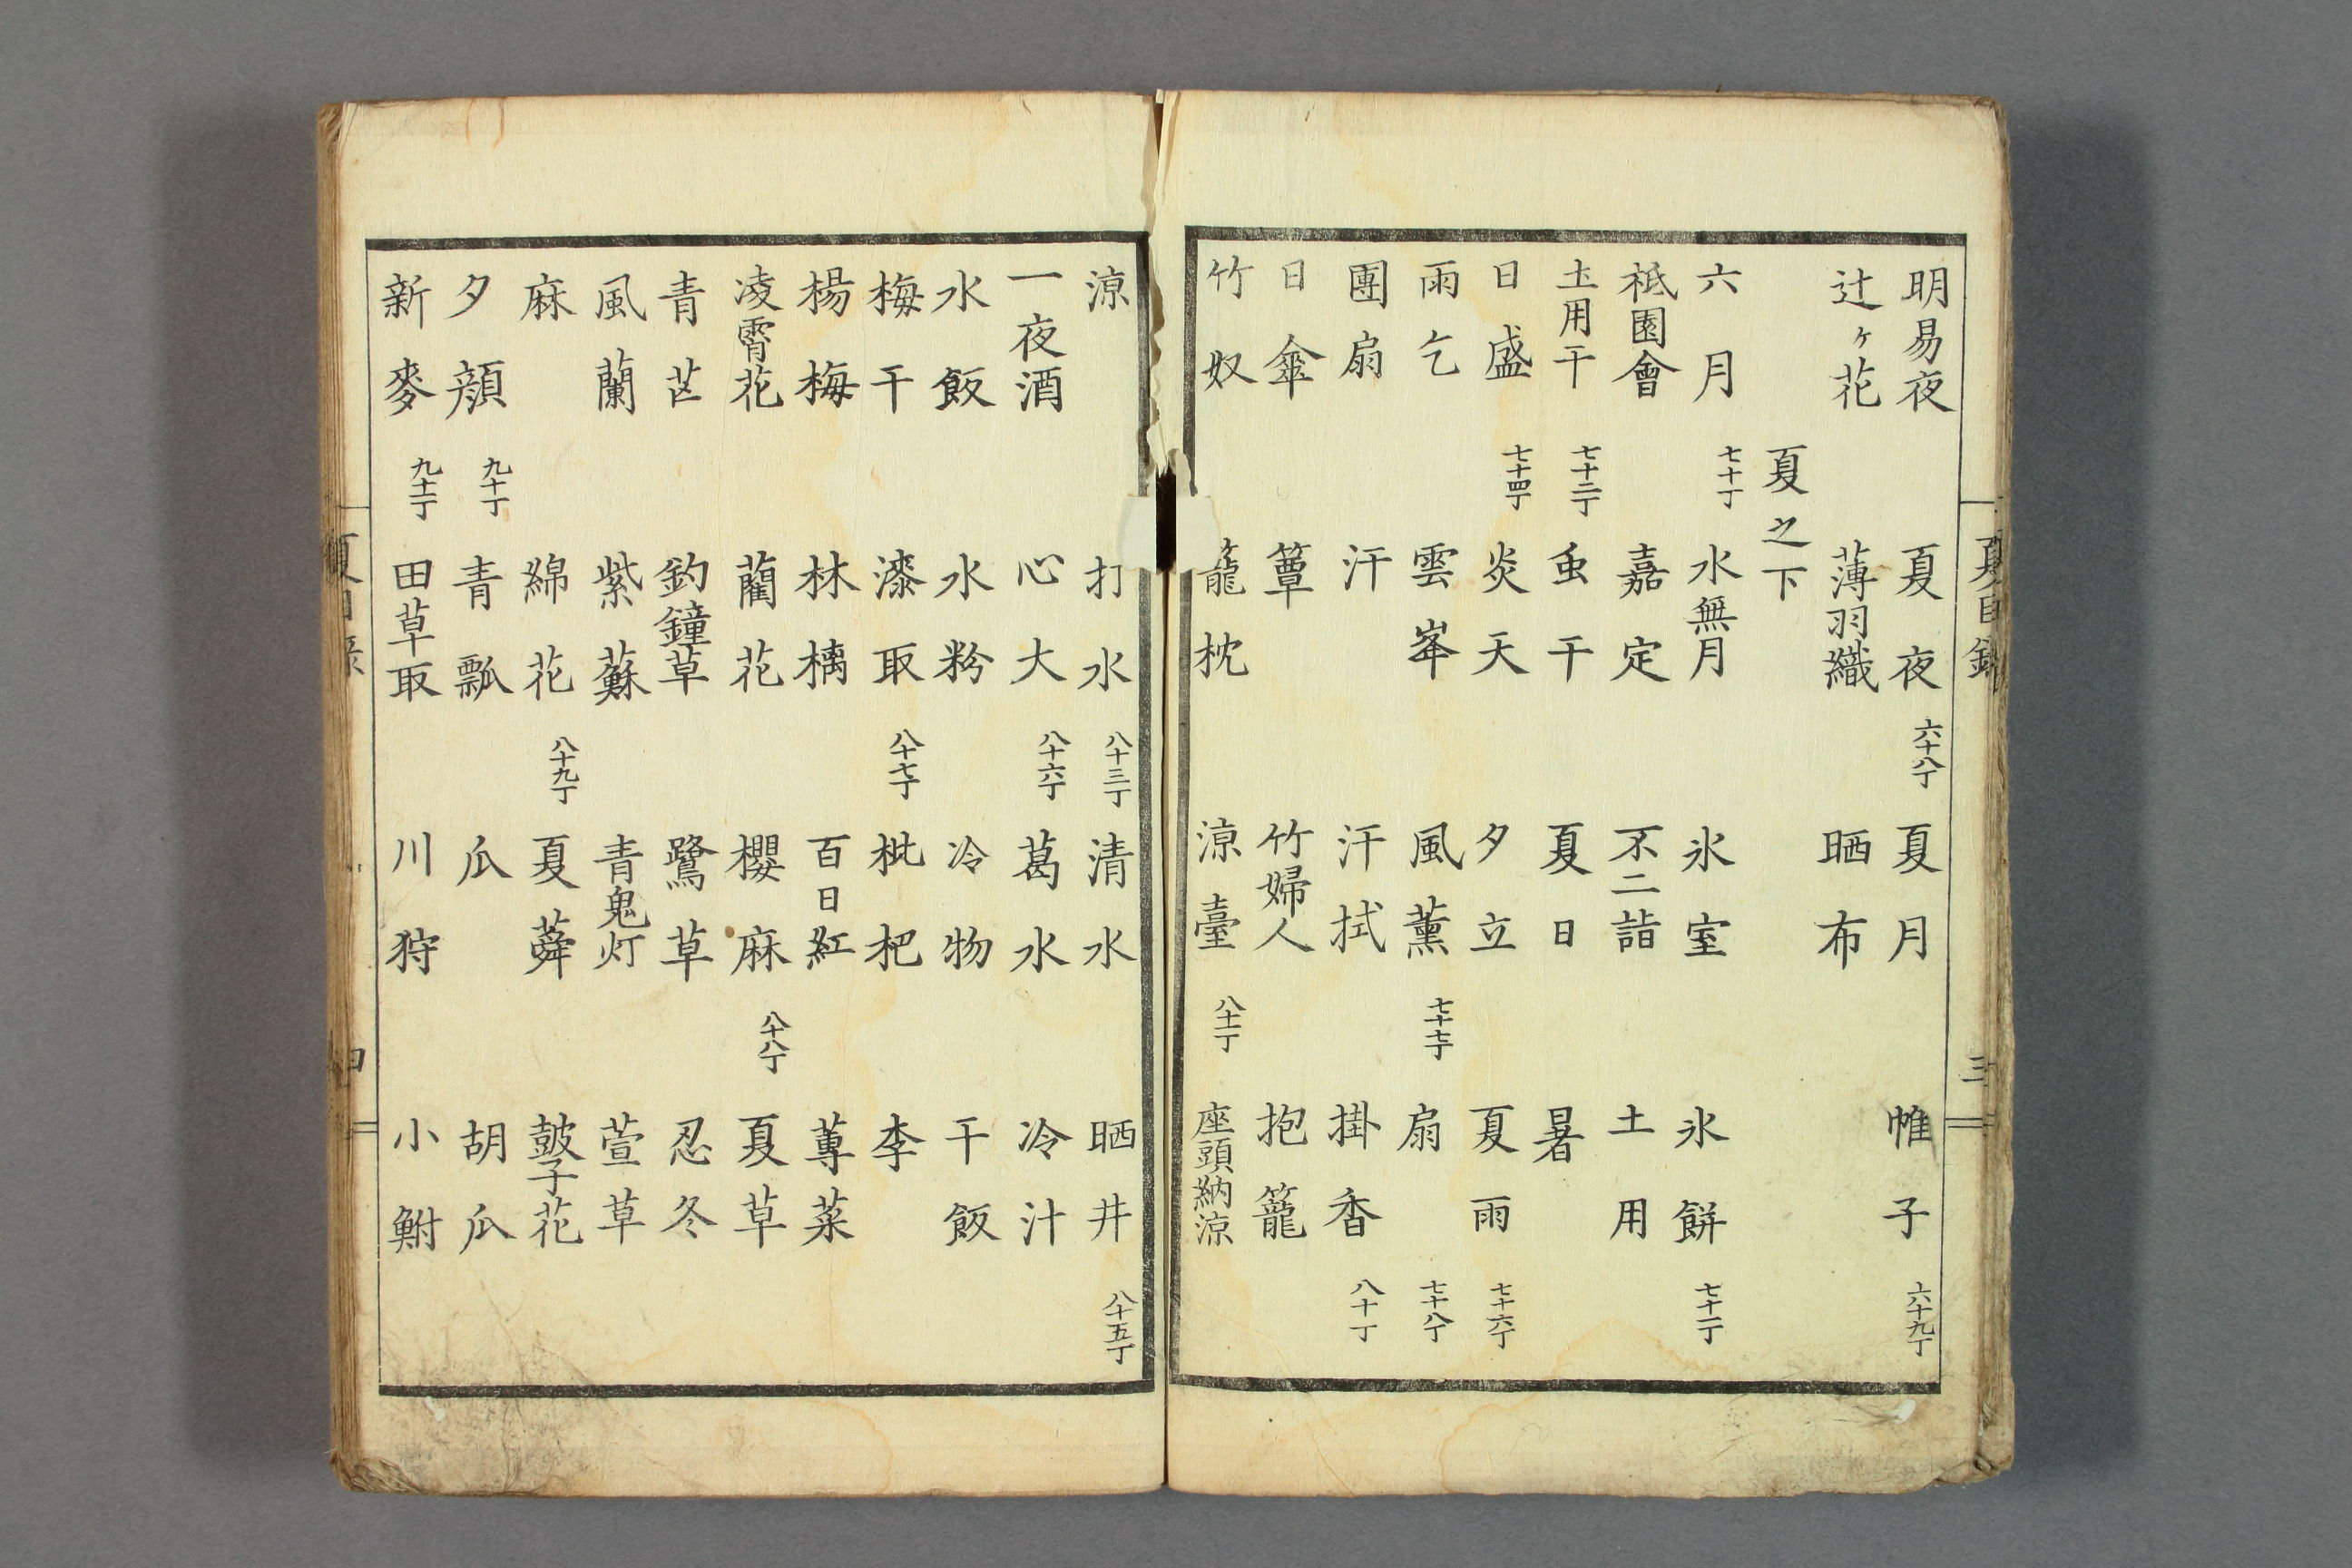 明易夜　夏夜　六十八丁　夏月　帷子　六十九丁
辻ヶ花　薄羽織　晒布
夏之下
六月　七十丁　水無月　氷室　氷餅　七十一丁
祗園會　嘉定　不二詣　土用
土用干　七十二丁　虫干　夏日　暑
日盛　七十四丁　炎天　夕立　夏雨　七十六丁
雨乞　雲峯　風薫　七十七丁　扇　七十八丁
團扇　汗　汗拭　掛香　八十丁
日傘　簟　竹婦人　抱籠
竹奴　籠枕　涼臺　八十一丁　座頭納涼
涼　打水　八十三丁　清水　晒井　八十五丁
一夜酒　心太　八十六丁　葛水　冷汁
水飯　水粉　冷物　干飯
梅干　漆取　八十七丁　枇杷　李
楊梅　林檎　百日紅　蓴菜
凌霄花　藺花　櫻麻　八十八丁　夏草
青芒　釣鐘草　鷺草　忍冬
風蘭　紫蘇　青鬼灯　萱草
麻　綿花　八十九丁　夏蕣　鼓子花
夕顔　九十丁　青瓢　瓜　胡瓜
新麥　九十一丁　田草取　川狩　小鮒
夏目録　三
夏目録　四